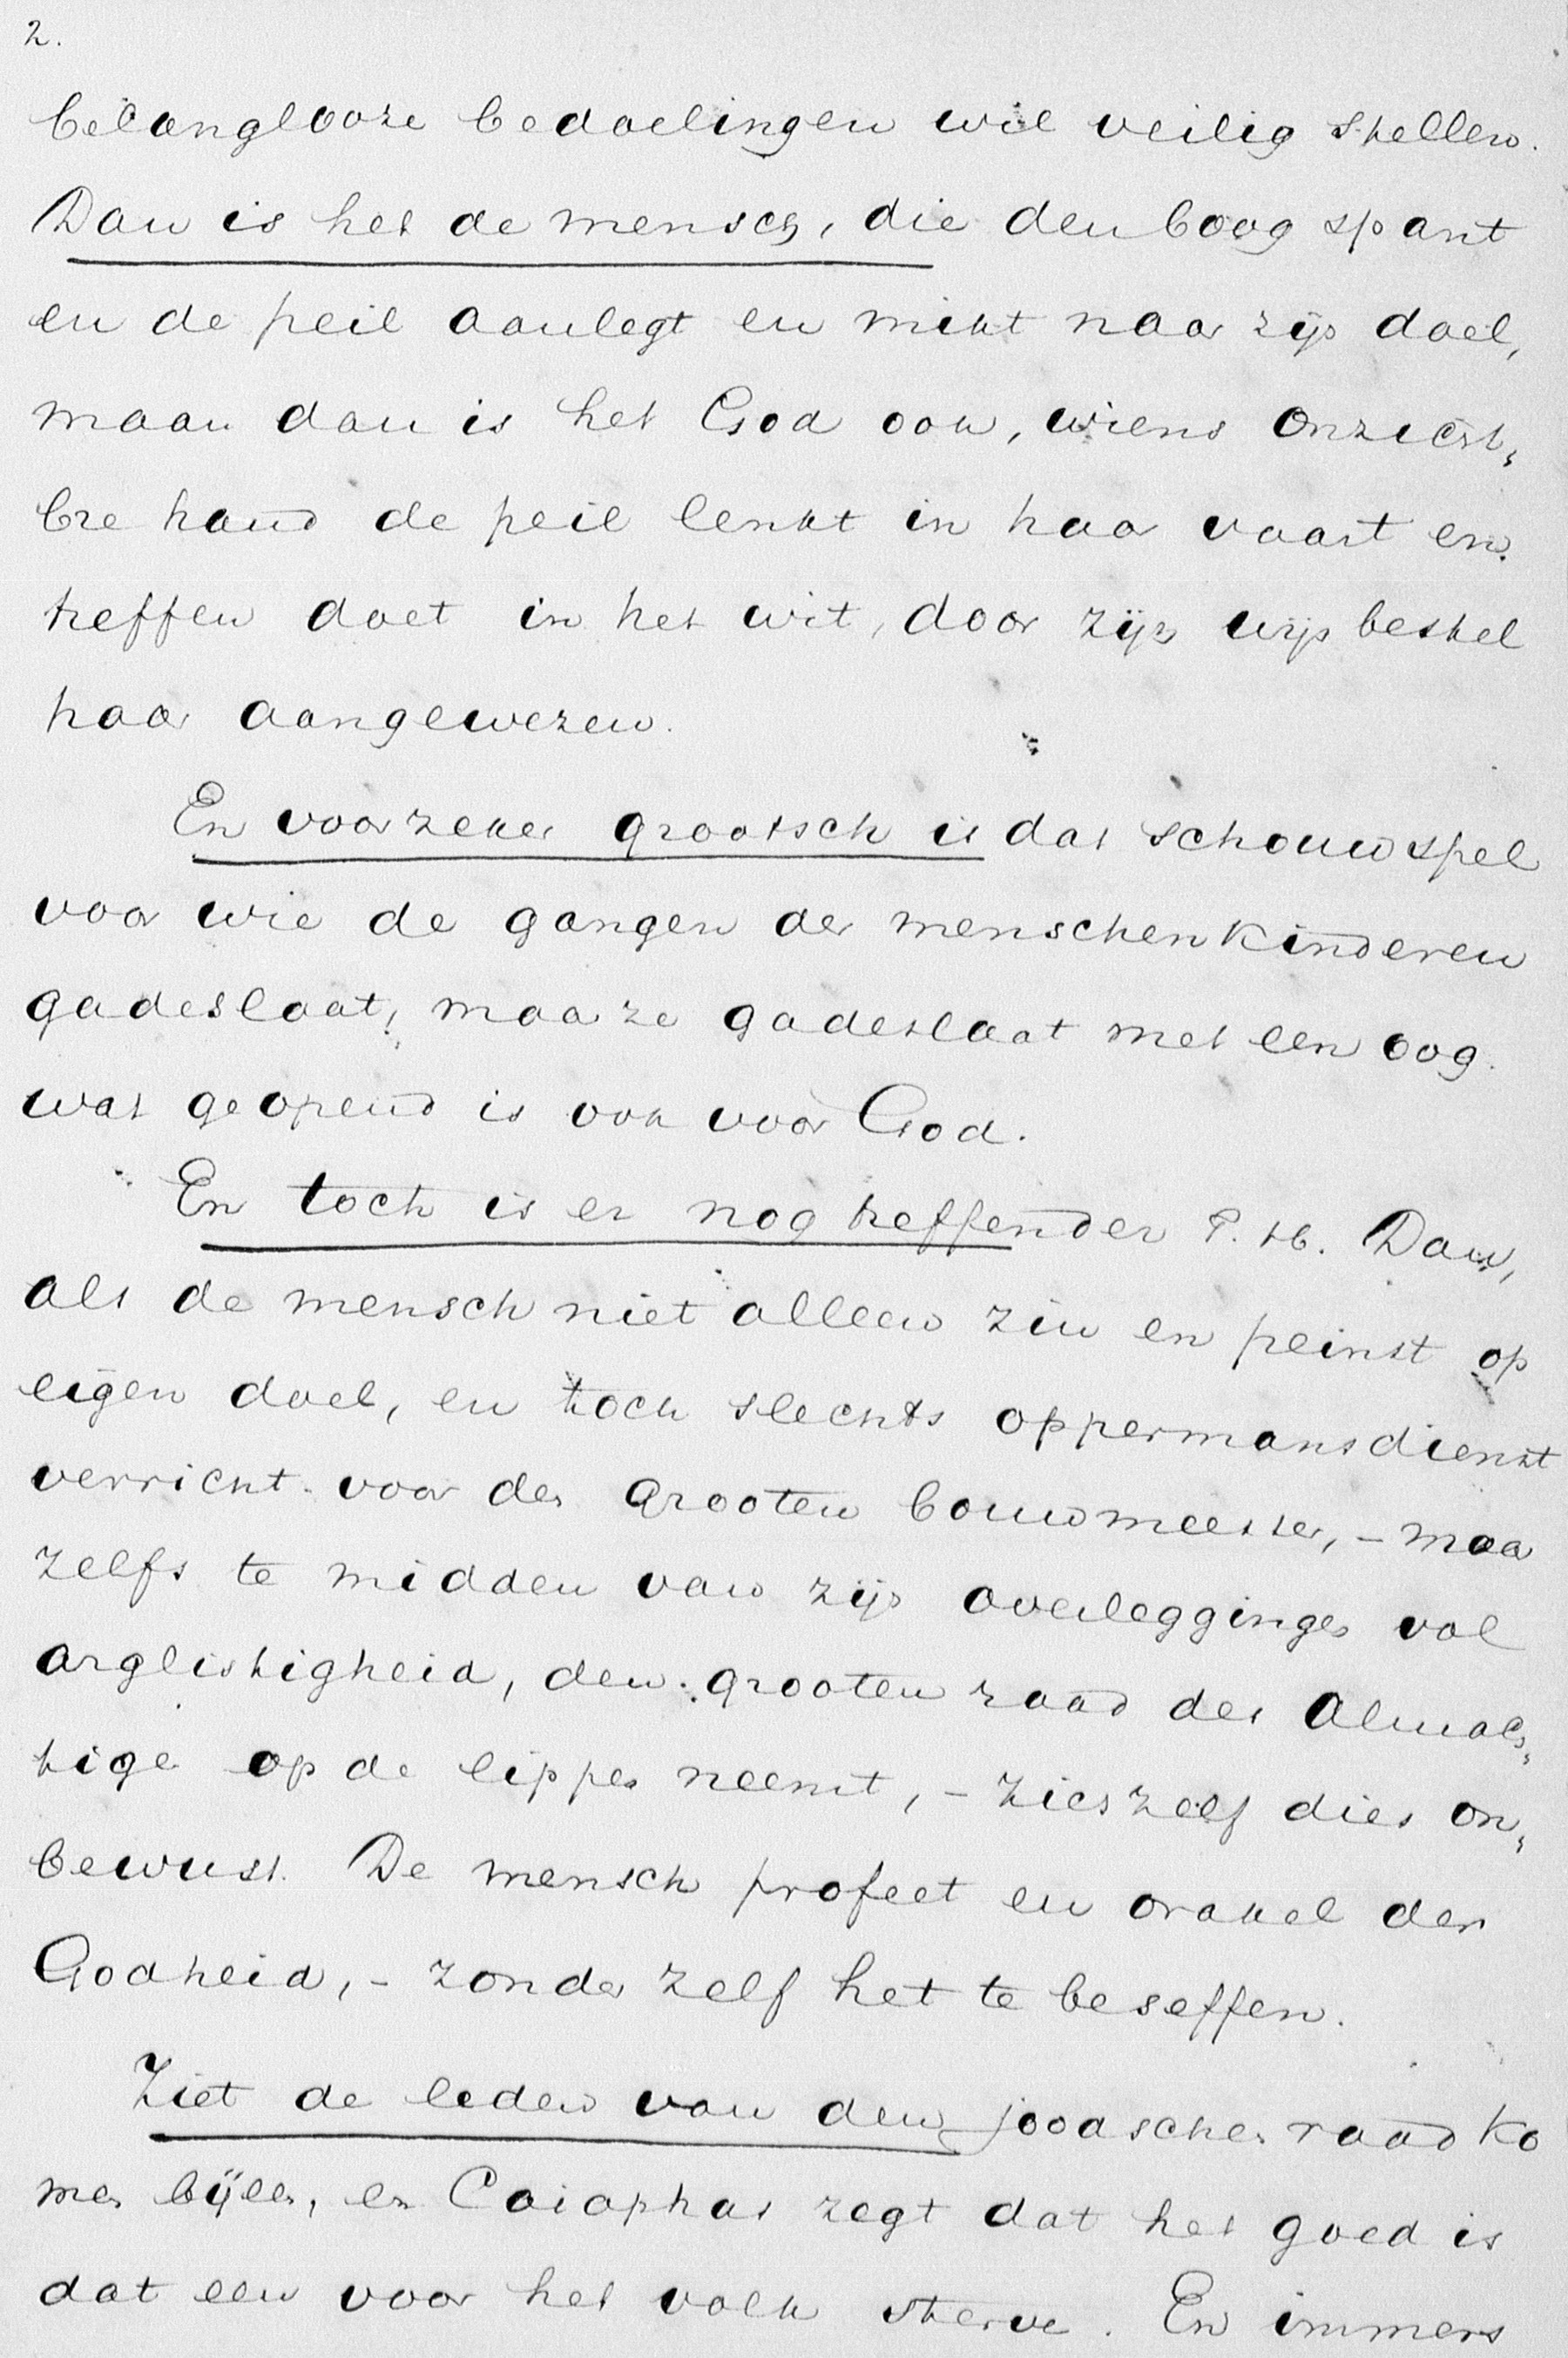 2.
belanglooze bedoelingen wil veilig stellen.
Dan is het de mensch, die den boog spant
en de peil aanlegt en mikt naar zijn doel,
maar dan is het God ook, wiens onzicht,
bre hand de peil lenkt in haar vaart en
treffen doet in het wit, door zijn wijs bestel
haar aangewezen.
En voorzeker grootsch is dat schouwspel
voor wie de gangen der menschenkinderen
gadeslaat, maar ze gadeslaat met een oog
wat geopend is ook voor God.
En toch is er nog treffender Dan,
als de mensch niet alleen zin en peinst op
eigen doel, en toch slechts oppermansdienst
verricht voor den grooten bouwmeester, - maar
zelfs te midden van zijn overleggingen vol
arglistigheid, den grooten raad des Almach,
tige op de lippen neemt, - zich zelf dies on,
bewust. De mensch profeet en orakel der
Godheid, - zonder zelf het te beseffen.
Ziet de leden van den joodschen raad ko
men bijeen, en Caiaphas zegt dat het goed is
dat een voor het volk sterve. En immers